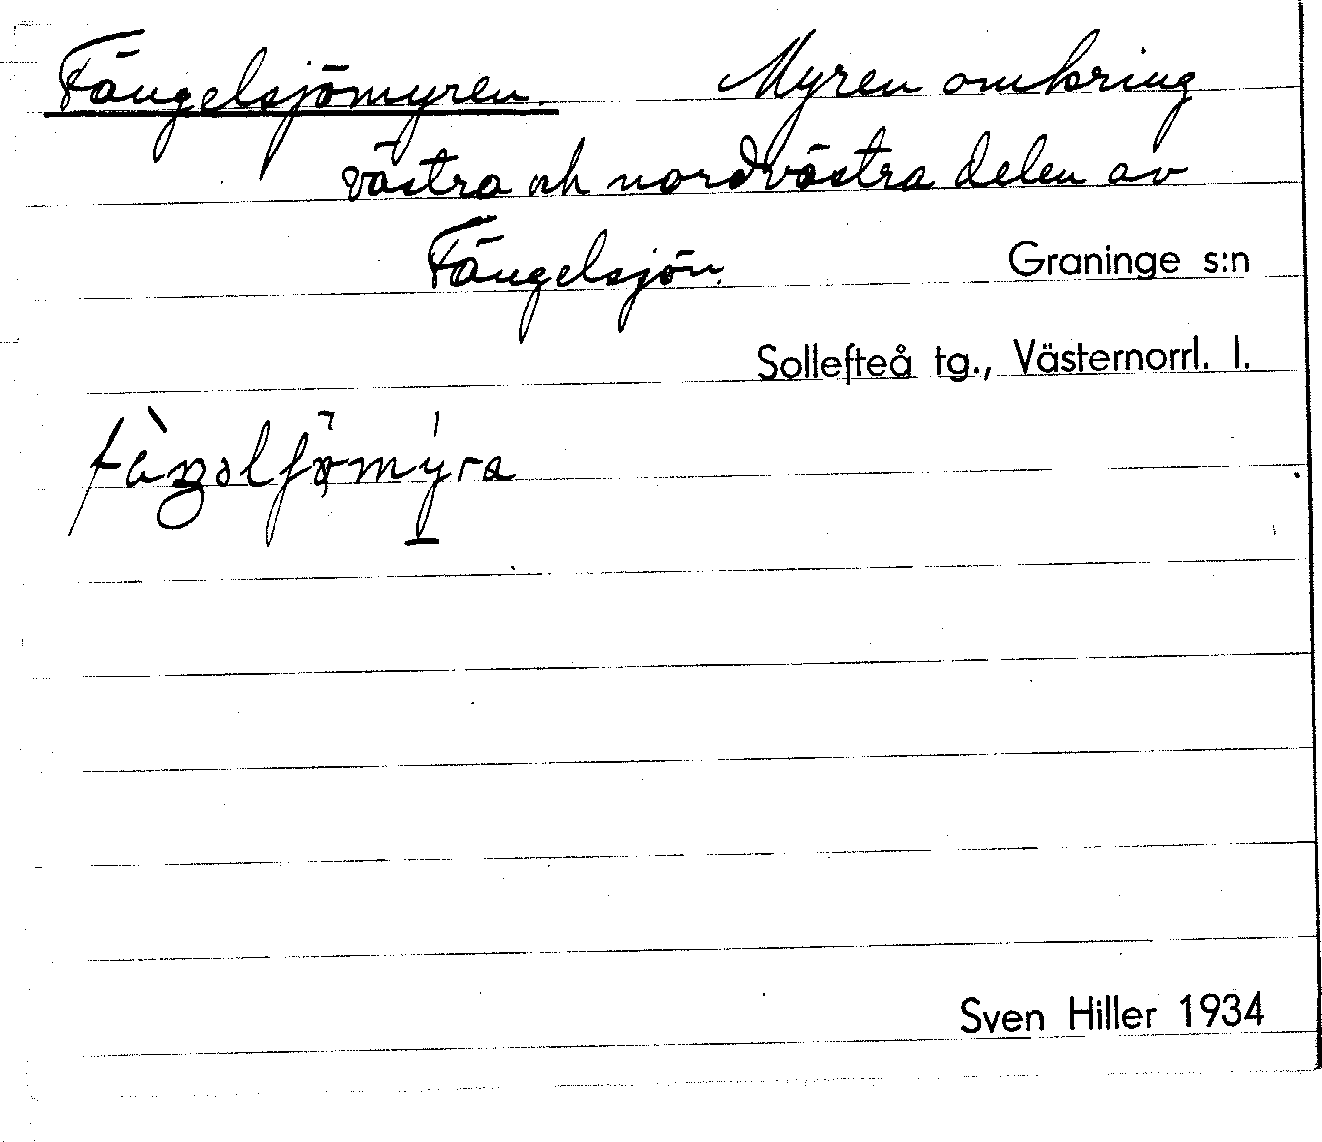 Fängelsjömyren. Myren omkring
västra och nordvästra delen av
Fängelsjön.
Graninge s:n
Sollefteå tg., Västernorrl. l.
Sven Hiller 1934